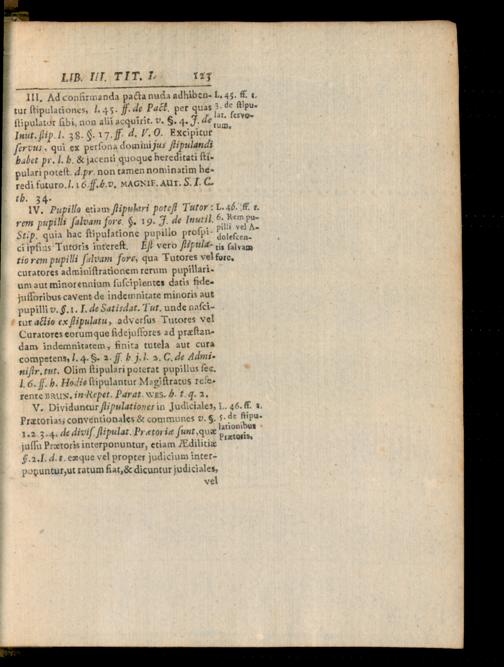 LIB. III. TIT. I. 123
III. Ad confirmanda pacta nuda adhiben-
tur stipulationes, l. 45. ff. de Pact. per quas
stipulator sibi, non alii acquirit. v. §. 4. J. de
Inut. stip. l. 38. §. 17. ff. d. V. O. Excipitur
servus, qui ex persona domini jus stipulandi
habet pr. l. h. & jacenti quoque hereditati sti-
pulari potest. d. pr. non tamen nominatim he-
redi futuro. l. 16. ff. h. v. MAGNIF. AUT. S. J. C.
th. 34.
L. 45. ff. 1.
3. de stipu-
lat. servo-
rum.
IV. Pupillo etiam stipulari potest Tutor:
rem pupilli salvam fore. §. 19. J. de Inutil.
Stip. quia hac stipulatione pupillo prospi-
ci ipsius Tutoris interest. Est vero stipula-
tio rem pupilli salvam fore, qua Tutores vel
curatores administrationem rerum pupillari-
um aut minorennium suscipientes datis fide-
jussoribus cavent de indemnitate minoris aut
pupilli v. §. 1. I. de Satisdat. Tut. unde nasci-
tur actio ex stipulatu, adversus Tutores vel
Curatores eorumque fidejussores ad præstan-
dam indemnitatem, finita tutela aut cura
competens, l. 4. §. 2. ff. h. j. l. 2. C. de Admi-
nistr. tut. Olim stipulari poterat pupillus sec.
l. 6. ff. h. Hodie stipulantur Magistratus refe-
rente BRUN. in Repet. Parat. WES. h. t. q. 2.
L. 46. ff. t.
6. Rem pu-
pilli vel A-
dolescen-
tis salvam
fore.
V. Dividuntur stipulationes in Judiciales,
Prætorias conventionales & communes v. §.
1. 2. 3. 4. de divis. stipulat. Prætoriæ sunt, quæ
jussu Prætoris interponuntur, etiam Ædilitiæ
§. 2. I. d. t. eæque vel propter judicium inter-
ponuntur, ut ratum fiat, & dicuntur judiciales,
L. 46. ff. t.
5. de stipu-
lationibus
Prætoris.
vel